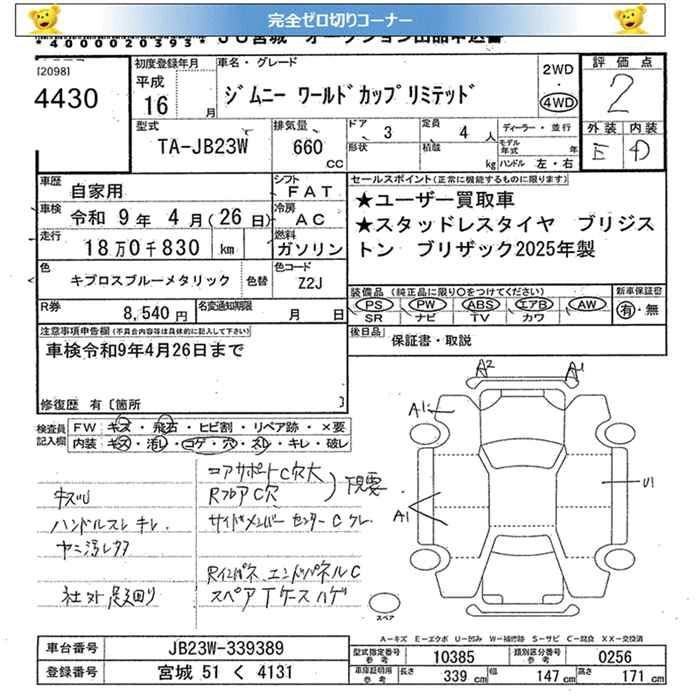 完全ゼロ切りコーナー
*4000020393* JU宮城 オークション出品申込書
[2098]
4430
初度登録年月
平成
16 月
車名・グレード
ジムニー ワールドカップリミテッド
2WD
・
4WD
評価点
2
外装 内装
E D
型式
TA-JB23W
排気量
660
CC
ドア 3
形状
定員 4 人
積載 kg
ディーラー・並行
モデル年式 年
ハンドル 左・右
車歴
自家用
シフト
FAT
車検
令和 9年 4月(26日)
冷房
AC
走行
18万0千830 km
燃料
ガソリン
色
キプロスブルーメタリック
色替
色コード
Z2J
R券
8,540円
名変通知期限
月 日
セールスポイント(正常に機能するものに限ります)
★ユーザー買取車
★スタッドレスタイヤ ブリジス
トン ブリザック2025年製
装備品(純正品に限り○をつけてください)
PS PW ABS エアB AW
SR ナビ TV カワ
新車保証書
有・無
後日品
保証書・取説
注意事項申告欄(不具合内容等は具体的に記入して下さい)
車検令和9年4月26日まで
修復歴 有〔箇所 〕
検査員記入欄
FW キズ・飛石・ヒビ割・リペア跡・×要
内装 キズ・汚レ・コゲ・穴・スレ・キレ・破レ
コアサポートC穴大
RフロアC穴
現要
キズU
ハンドルスレ キレ.
サイドメンバー センターC
ヤニ汚レ
Rインパネ、エンドパネルC
社外足回り
スペアTケースハゲ
A2 A1
A1
A1
U1
スペア
A-キズ E-エクボ U-凹み W-補修跡 S-サビ C-腐食 XX-交換済
車台番号
JB23W-339389
登録番号
宮城 51 く 4131
型式指定番号
参考
10385
類別区分番号
参考
0256
車庫証明用
参考
長さ 339 cm
幅 147 cm
高さ 171 cm